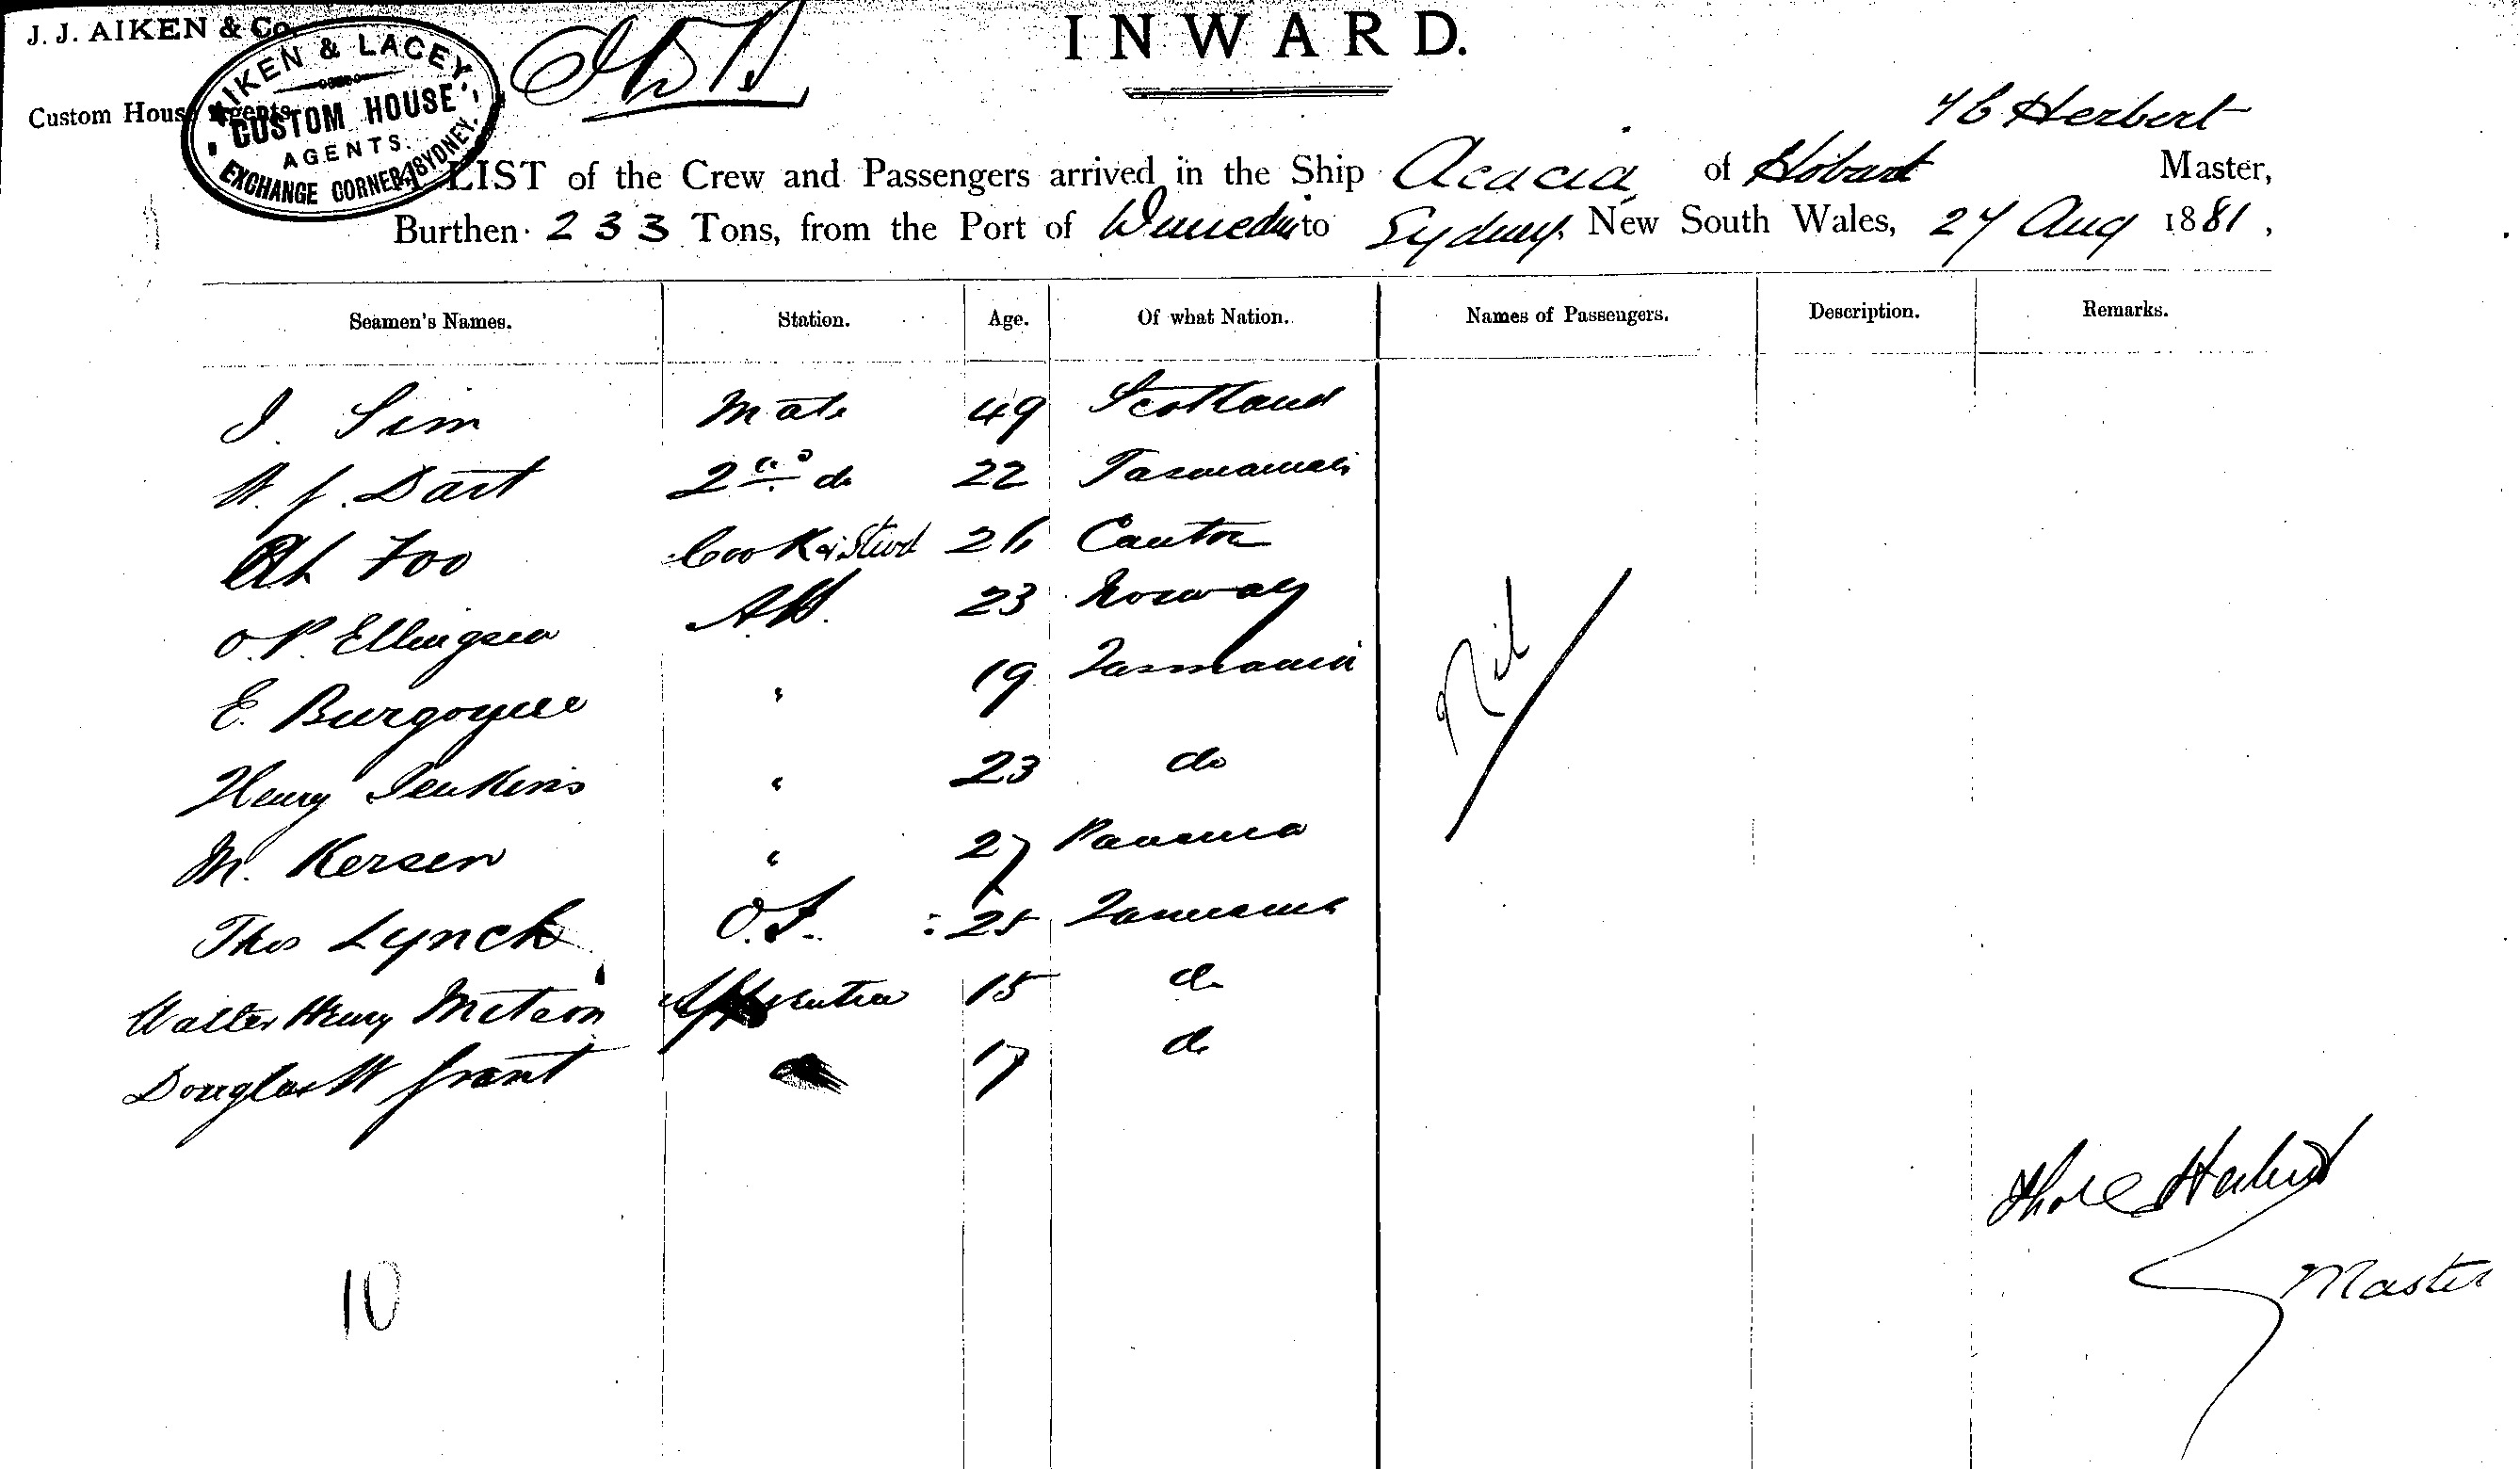 J. J. AIKEN & Co.
INWARD.
AIKEN & LACEY,
CUSTOM HOUSE
AGENTS.
EXCHANGE CORNER, SYDNEY.
Custom House Agents
Herbert
LIST of the Crew and Passengers arrived in the Ship Acacia of Hobart Master,
Burthen 233 Tons, from the Port of Dunedin to Sydney New South Wales, 27 Aug 1881,
Seamen's Names. Station. Age. Of what Nation. Names of Passengers. Description. Remarks.
J. Sim Mate 49 Scotland
W. J. Dart 2nd do 22 Tasmania
Ah Foo Cook & Stwd 26 Canton
O. P. Ellingsen AB. 23 Norway
E. Burgoyne " 19 Tasmania
Nil
Henry Jenkins " 23 do
M. Kersen " 27 Panama
Thos Lynch O.S. 25 Tasmania
Walter Henry Apprentice 15 do
Douglas W Grant 17 do
Herbert
Master
10